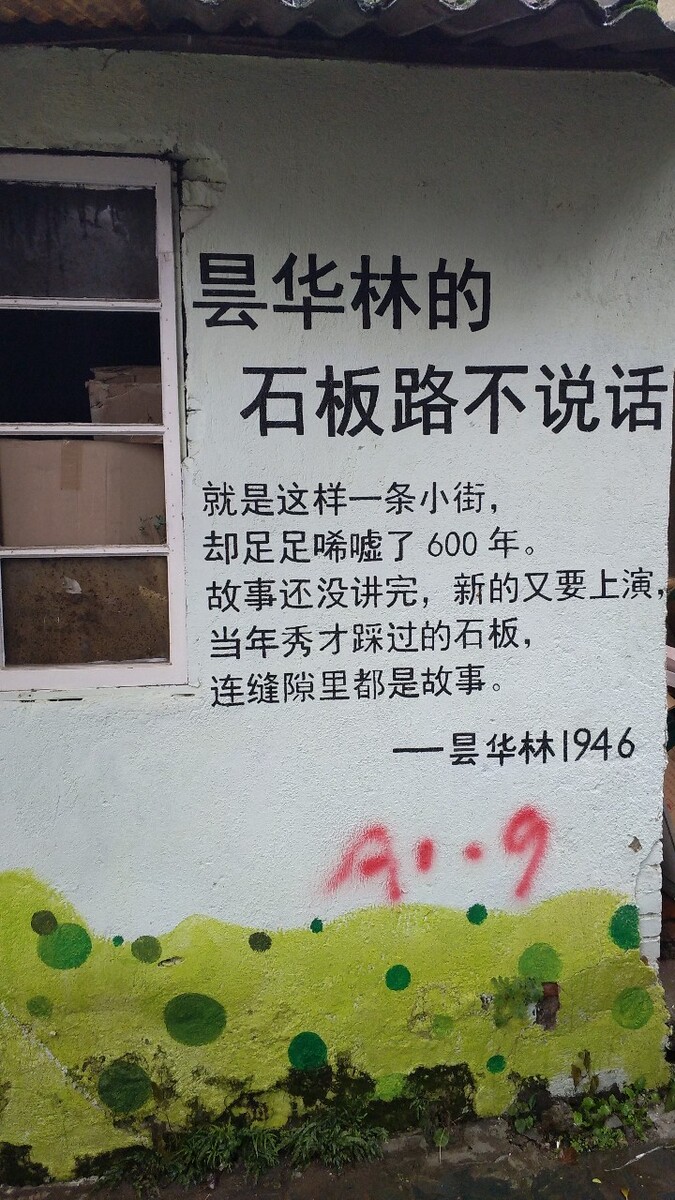 昙华林的
石板路不说话
就是这样一条小街，
却足足唏嘘了 600 年。
故事还没讲完，新的又要上演，
当年秀才踩过的石板，
连缝隙里都是故事。
——昙华林1946